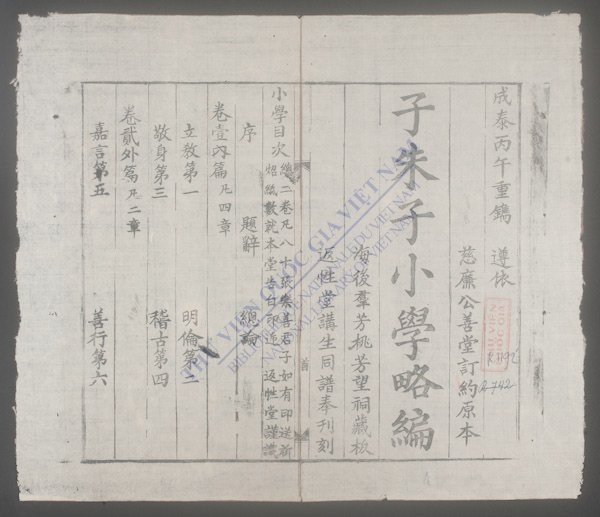 成泰丙午重鐫 遵依
慈廉公善堂訂約原本
子朱子小學略編
海後羣芳桃芳望祠藏板
返性堂講生同譜奉刊刻
小學目次 總二卷凡八十張樂善君子如有印送祈
照紙數就本堂告白印送 返性堂謹識
序 題辭 總論
卷壹內篇 凡四章
立敎第一 明倫第二
敬身第三 稽古第四
卷貳外篇 凡二章
嘉言第五 善行第六
THƯ VIỆN QUỐC GIA VIỆT NAM
BIBLIOTHÈQUE NATIONALE DU VIETNAM
NATIONAL LIBRARY OF VIETNAM
R.1192
R.742